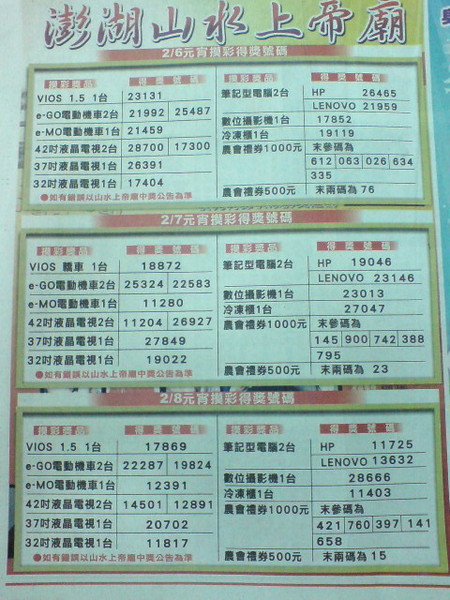 澎湖山水上帝廟
2/6元宵摸彩得獎號碼
摸彩獎品 得獎號碼 摸彩獎品 得獎號碼
VIOS 1.5 1台 23131 筆記型電腦2台 HP 26465
LENOVO 21959
e-GO電動機車2台 21992 25487
e-MO電動機車1台 21459 數位攝影機1台 17852
42吋液晶電視2台 28700 17300 冷凍櫃1台 19119
37吋液晶電視1台 26391 農會禮券1000元 末參碼為
612 063 026 634
335
32吋液晶電視1台 17404 農會禮券500元 末兩碼為 76
●如有錯誤以山水上帝廟中獎公告為準
2/7元宵摸彩得獎號碼
摸彩獎品 得獎號碼 摸彩獎品 得獎號碼
VIOS 轎車 1台 18872 筆記型電腦2台 HP 19046
LENOVO 23146
e-GO電動機車2台 25324 22583
e-MO電動機車1台 11280 數位攝影機1台 23013
冷凍櫃1台 27047
42吋液晶電視2台 11204 26927 農會禮券1000元 末參碼為
37吋液晶電視1台 27849 145 900 742 388
795
32吋液晶電視1台 19022 農會禮券500元 末兩碼為 23
●如有錯誤以山水上帝廟中獎公告為準
2/8元宵摸彩得獎號碼
摸彩獎品 得獎號碼 摸彩獎品 得獎號碼
VIOS 1.5 1台 17869 筆記型電腦2台 HP 11725
LENOVO 13632
e-GO電動機車2台 22287 19824
e-MO電動機車1台 12391 數位攝影機1台 28666
冷凍櫃1台 11403
42吋液晶電視2台 14501 12891 農會禮券1000元 末參碼為
37吋液晶電視1台 20702 421 760 397 141
658
32吋液晶電視1台 11817 農會禮券500元 末兩碼為 15
●如有錯誤以山水上帝廟中獎公告為準